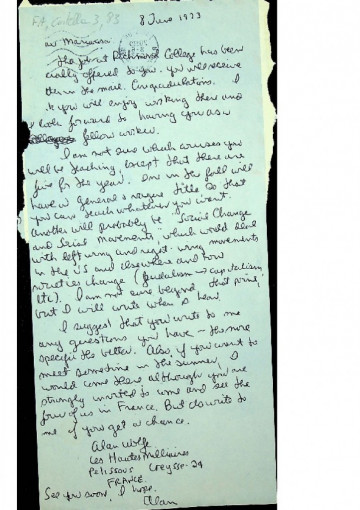 8 June 1973
ar Marianna
The job at Richmond College has been
cially offered to you. You will receive
in the mail. Congradulations. I
k you will enjoy working there and
I look forward to having you as a
fellow worker.
I am not sure which courses you
will be teaching, except that there are
five for the year. One in the fall will
have a general & vague title so that
you can teach whatever you want.
Another will probably be "Social Change
and Social Movements" which would deal
with left wing and right-wing movements
in the US and elsewhere and how
societies change (feudalism → capitalism,
etc). I am not sure beyond that point,
but I will write when I hear.
I suggest that you write to me
any questions you have - the more
specific the better. Also, if you want to
meet sometime in the summer, I
would come there although you are
strongly invited to come and see the
four of us in France. But do write to
me if you get a chance.
Alan Wolfe
Les Hautes Millieires
Pelissous Creysse-24
FRANCE
See you soon, I hope.
Alan